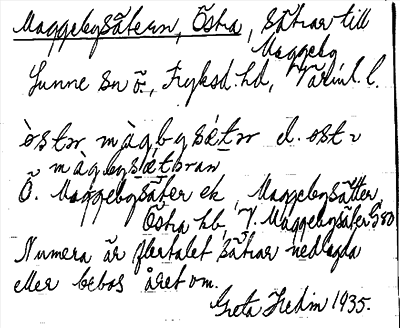 Maggebysätern, Östra, sätrar till
Maggeby
Sunne sn Ö, Fryksd. hd, Värml. l.
òstr màgbysætr el. ost
màgbysætran
Ö. Maggebysäter ek, Maggebysätter
Östra hb, Maggebysäter
Numera är flertalet sätrar nedlagda
eller bebos året om.
Greta Hedin 1935.